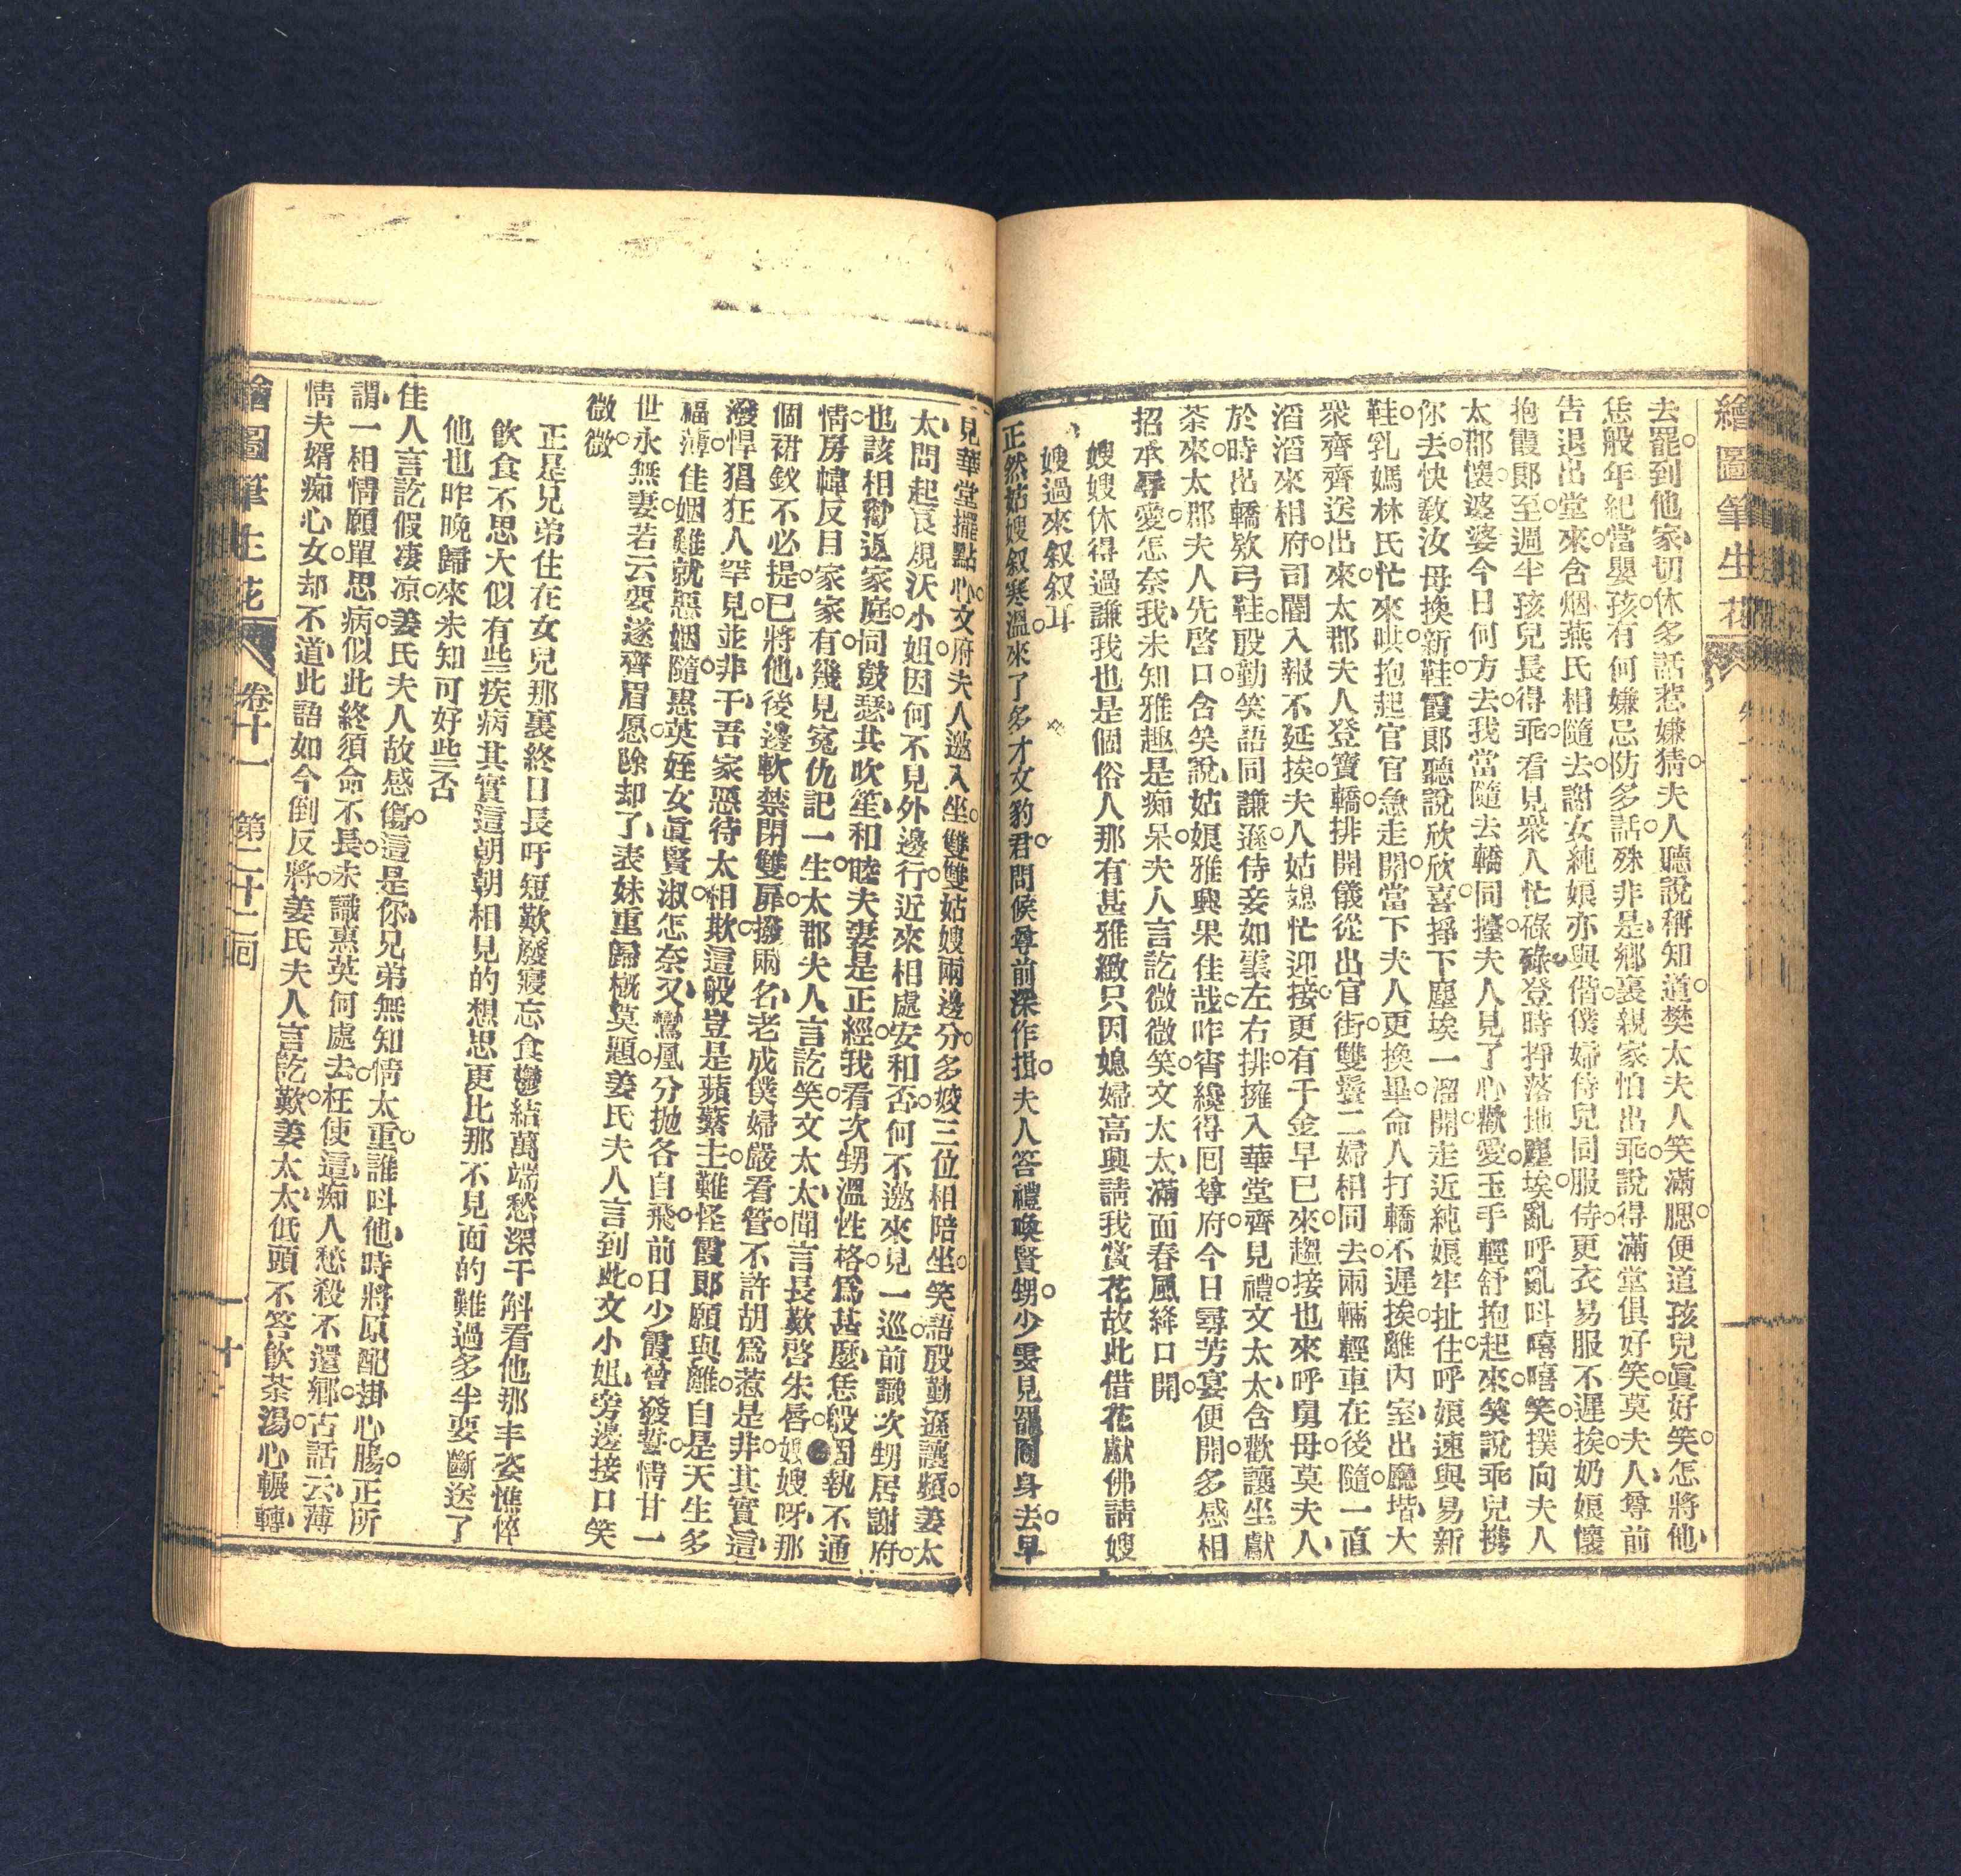 繪圖筆生花
去罷。到他家、切休多話惹嫌猜。夫人聽說稱知道。樊太夫人笑滿腮。便道孩兒眞好笑。怎將他、
恁般年紀當嬰孩。有何嫌忌防多話。殊非是、鄉裏親家怕出乖。說得滿堂俱好笑。莫夫人、尊前
告退出堂來。含烟燕氏相隨去。謝女純娘亦與偕。僕婦侍兒同服侍。更衣易服不遲挨。奶娘懷
抱霞郎至。週半孩兒長得乖。看見衆人忙碌碌。登時掙落地塵埃。亂呼亂呌嘻嘻笑。撲向夫人
太郡懷。婆婆今日何方去。我當隨去轎同擡。夫人見了心歡愛。玉手輕舒抱起來。笑說乖兒攙
你去。快敎汝母換新鞋。霞郎聽說欣欣喜。掙下塵埃一溜開。走近純娘牢扯住。呼娘速與易新
鞋。乳媽林氏忙來哄。抱起官官急走開。當下夫人更換畢。命人打轎不遲挨。離內室、出廳堦、大
衆齊齊送出來。太郡夫人登寶轎。排開儀從出官街。雙鬟二婦相同去。兩輛輕車在後隨。一直
滔滔來相府。司閽入報不延挨。夫人姑媳忙迎接。更有千金早已來。趨接也來呼舅母。莫夫人、
於時出轎欵弓鞋。殷勤笑語同謙遜。侍妾如雲左右排。擁入華堂齊見禮。文太太、含歡讓坐獻
茶來。太郡夫人先啓口。含笑說、姑娘雅興果佳哉。昨宵纔得囘尊府。今日尋芳宴便開。多感相
招承尋愛。怎奈我、未知雅趣是痴呆。夫人言訖微微笑。文太太、滿面春風絳口開。
嫂嫂休得過謙我也是個俗人那有甚雅緻只因媳婦高興請我賞花故此借花獻佛請嫂
嫂過來叙叙耳
正然姑嫂叙寒溫。來了多才文豹君。問候尊前深作揖。夫人答禮喚賢甥。少雯見罷囘身去。早
見華堂擺點心。文府夫人邀入坐。雙雙姑嫂兩邊分。多姣三位相陪坐。笑語殷勤遜讓頻。姜太
太、問起哀覌沃小姐。因何不見外邊行。近來相處安和否。何不邀來見一巡。前識次甥居謝府。
也該相勸返家庭。同鼓瑟、共吹笙、和睦夫妻是正經。我看次甥溫性格。爲甚麼、恁般固執不通
情。房幃反目家家有。幾見冤仇記一生。太郡夫人言訖笑。文太太、聞言長歎啓朱唇。嫂嫂呀、那
個裙釵不必提。已將他、後邊軟禁閉雙扉。撥兩名、老成僕婦嚴看管。不許胡爲惹是非。其實這、
潑悍猖狂人罕見。並非干、吾家惡待太相欺。這般豈是蘋蘩主。難怪霞郎願與離。自是天生多
福薄。佳姻難就惡姻隨。惠英姪女眞賢淑。怎奈又、鸞凰分抛各自飛。前日少霞曾發誓。情甘一
世永無妻。若云要遂齊眉愿。除却了、表妹重歸槪莫題。姜氏夫人言到此。文小姐、旁邊接口笑
微微。
正是兄弟住在女兒那裏終日長吁短歎廢寢忘食鬱結萬端愁深千斛看他那丰姿憔悴
飮食不思大似有些疾病其實這朝朝相見的想思更比那不見面的難過多半要斷送了
他也昨晚歸來未知可好些否
佳人言訖假凄凉。姜氏夫人故感傷。這是你、兄弟無知情太重。誰呌他、時將原配掛心腸。正所
謂、一相情願單思病。似此終須命不長。未識惠英何處去。枉使這、痴人愁殺不還鄉。古話云、薄
情夫婿痴心女。却不道、此語如今倒反將。姜氏夫人言訖歎。姜太太、低頭不答飮茶湯。心輾轉、
繪圖筆生花 卷十一 第二十二回 十